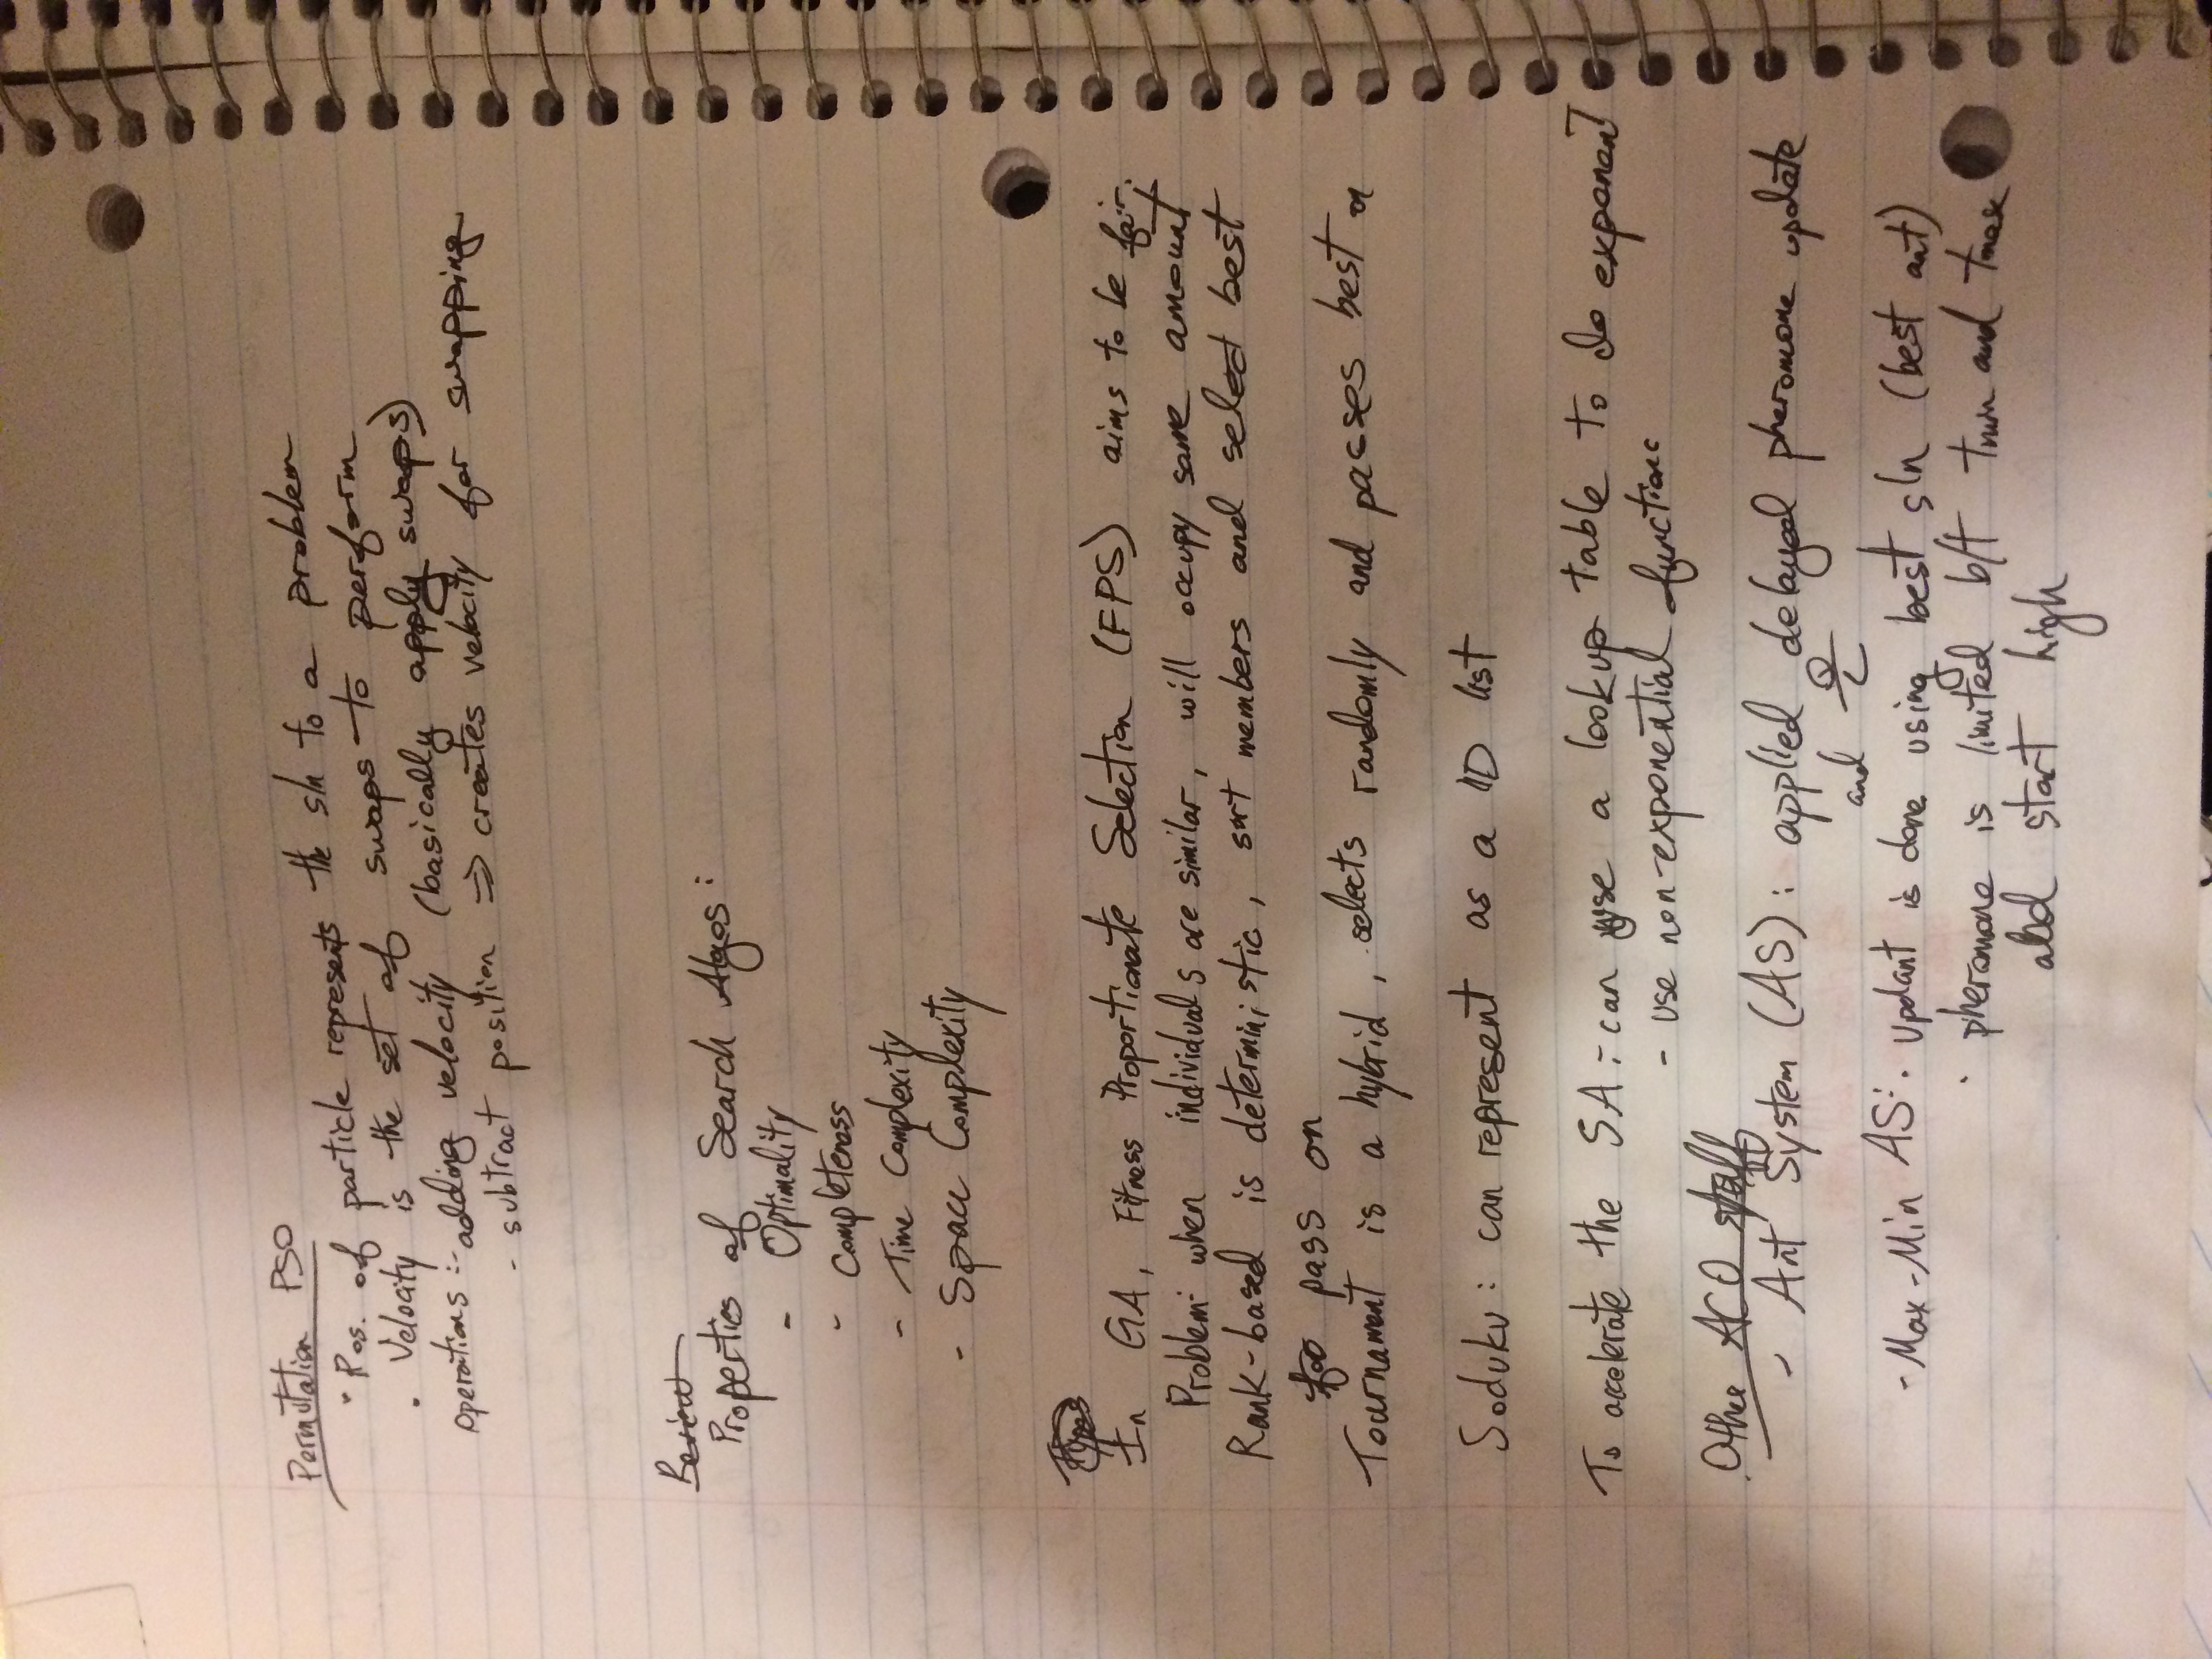 Permutation PSO
• Pos. of particle represents the sln to a problem
• Velocity is the set of swaps to perform
operations :- adding velocity (basically apply swaps)
- subtract position ⇒ creates velocity for swapping
Review
Properties of Search Algos:
- Optimality
- Completeness
- Time Complexity
- Space Complexity
Types
In GA, Fitness Proportionate Selection (FPS) aims to be fair.
Problem: when individuals are similar, will occupy same amount
Rank-based is deterministic, sort members and select best
to pass on
Tournament is a hybrid, selects randomly and passes best on
Soduku: can represent as a 1D list
To accelerate the SA :- can use a lookup table to do exponent
- use non-exponential functions
Other ACO stuff
- Ant System (AS): applied delayed pheromone update
and Q/L
- Max-Min AS: • updant is done using best sln (best ant)
• pheromone is limited b/t tmin and tmax
abd start high